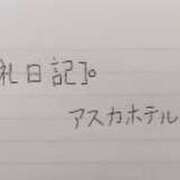 礼日記】。
アスカホテル